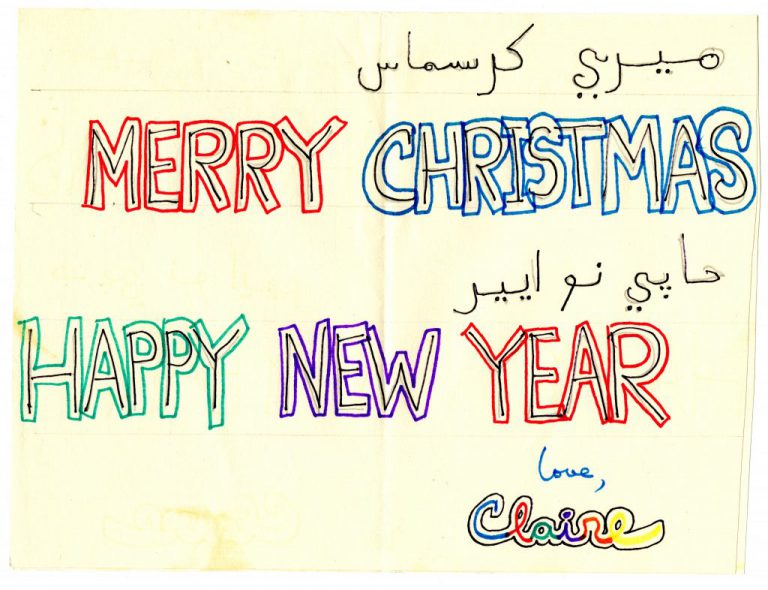 ميري كرسماس
MERRY CHRISTMAS
حاپي نو ايير
HAPPY NEW YEAR
love,
Claire